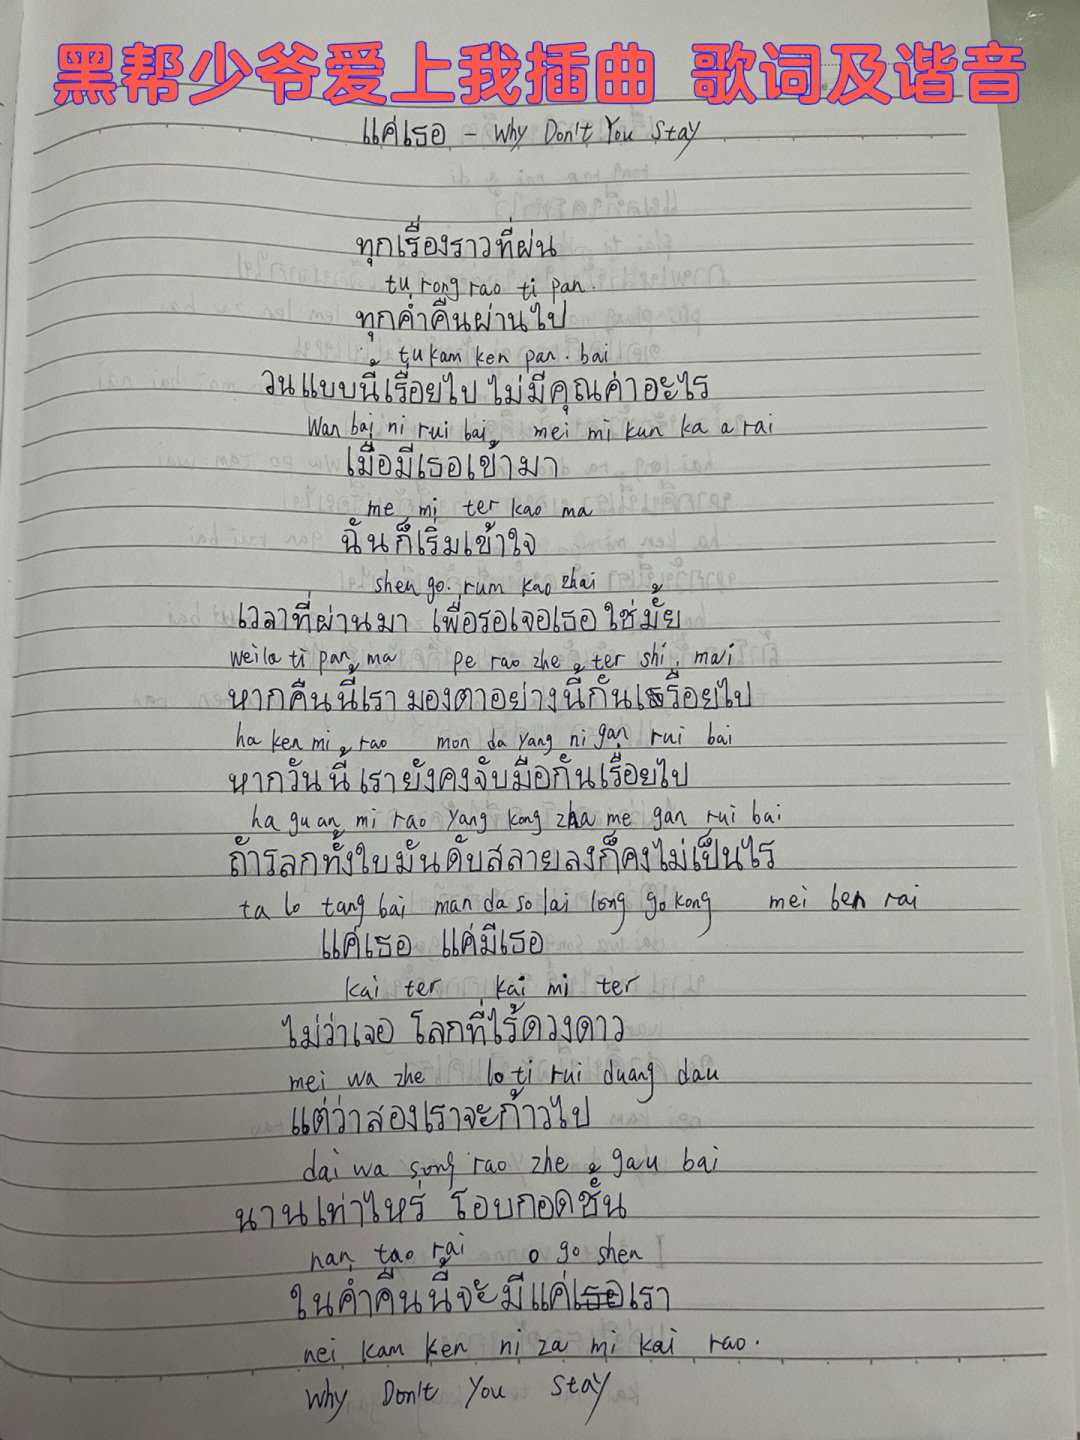 黑帮少爷爱上我插曲 歌词及谐音
แค่เธอ - Why Don't You Stay
ทุกเรื่องราวที่ผ่น
tu rong rao ti pan.
ทุกค่ำคืนผ่านไป
tu kam ken pan. bai
วนแบบนี้เรื่อยไป ไม่มีคุณค่าอะไร
Wan bai ni rui bai mei mi kun ka a rai
เมื่อมีเธอเข้ามา
me mi ter kao ma
ฉันก็เริ่มเข้าใจ
shen go. rum kao zhai
เวลาที่ผ่านมา เพื่อรอเจอเธอ ใช่มั้ย
weila ti pan ma pe rao zhe ter shi. mai
หากคืนนี้เรา มองตาอย่างนี้กันเรื่อยไป
ha ken mi rao mon da yang ni gan rui bai
หากวันนี้ เรายังคงจับมือกันเรื่อยไป
ha guan mi rao yang kong zha me gan rui bai
ถ้ารลกทั้งใบมันดับสลายลงก็คงไม่เป็นไร
ta lo tang bai man da so lai long go kong mei ben rai
แค่เธอ แค่มีเธอ
kai ter kai mi ter
ไม่ว่าเจอ โลกที่ไร้ดวงดาว
mei wa zhe lo ti rui duang dau
แต่ว่าสองเราจะก้าวไป
dai wa song rao zhe gau bai
นานเท่าไหร่ โอบกอดชั้น
nan tao rai o go shen
ในค่ำคืนนี้จะมีแค่เธอเรา
nei kam ken ni za mi kai rao.
Why Don't You Stay